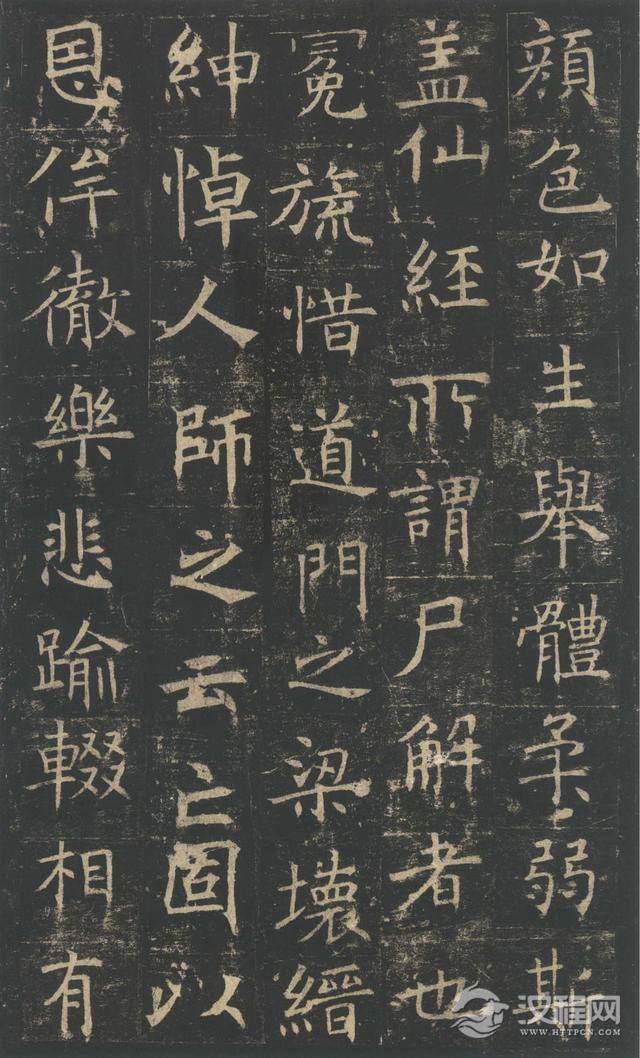 顔色如生舉體柔弱斯
盖仙經所謂尸解者也
冕旒惜道門之梁壞縉
紳悼人師之云亡固以
恩侔徹樂悲踰輟相有
汉程网
WWW.HTTPCN.COM